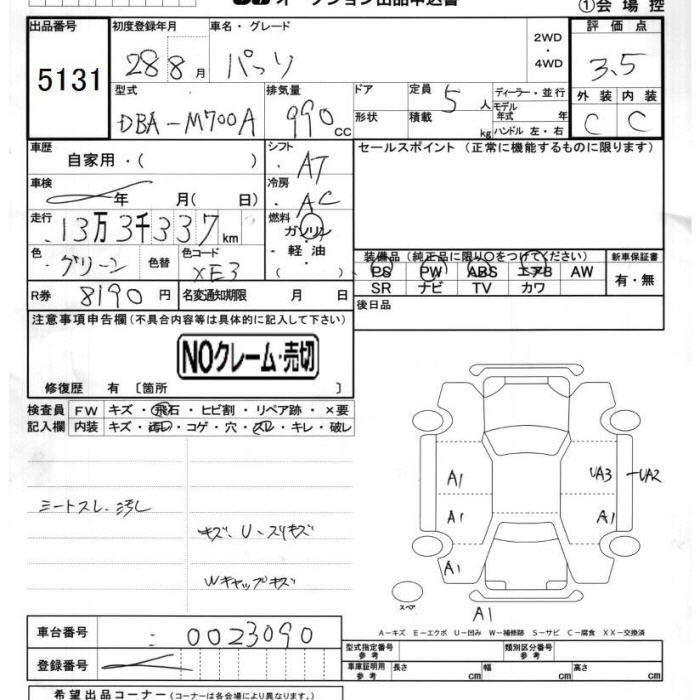 オークション出品申込書
①会場控
出品番号
5131
初度登録年月
28 8月
車名・グレード
パッソ
2WD
・
4WD
評価点
3.5
外装 内装
C C
型式
DBA-M700A
排気量
990 cc
ドア
形状
定員 5人
積載 kg
ディーラー・並行
モデル年式 年
ハンドル 左・右
車歴
自家用・( )
シフト
・AT
セールスポイント (正常に機能するものに限ります)
車検
年 月( 日)
冷房
・AC
走行
13万3千337km
燃料
ガソリン
・軽油
( )
色
・グリーン
色替
色コード
XE3
装備品(純正品に限り○をつけてください)
PS PW ABS エアB AW
SR ナビ TV カワ
新車保証書
有・無
R券 8190円
名変通知期限 月 日
後日品
注意事項申告欄(不具合内容等は具体的に記入して下さい)
NOクレーム・売切
修復歴 有 〔箇所 〕
検査員 FW キズ・飛石・ヒビ割・リペア跡・×要
記入欄 内装 キズ・汚レ・コゲ・穴・スレ・キレ・破レ
シートスレ、汚レ
キズ、U、スリキズ
Wキャップキズ
A1 UA3 UA2
A1 A1
A1
スペア
A1
A-キズ E-エクボ U-凹み W-補修跡 S-サビ C-腐食 XX-交換済
車台番号
0023090
登録番号
型式指定番号 参考
類別区分番号 参考
車庫証明用 参考 長さ cm 幅 cm 高さ cm
希望出品コーナー(コーナーは各会場により異なります。)